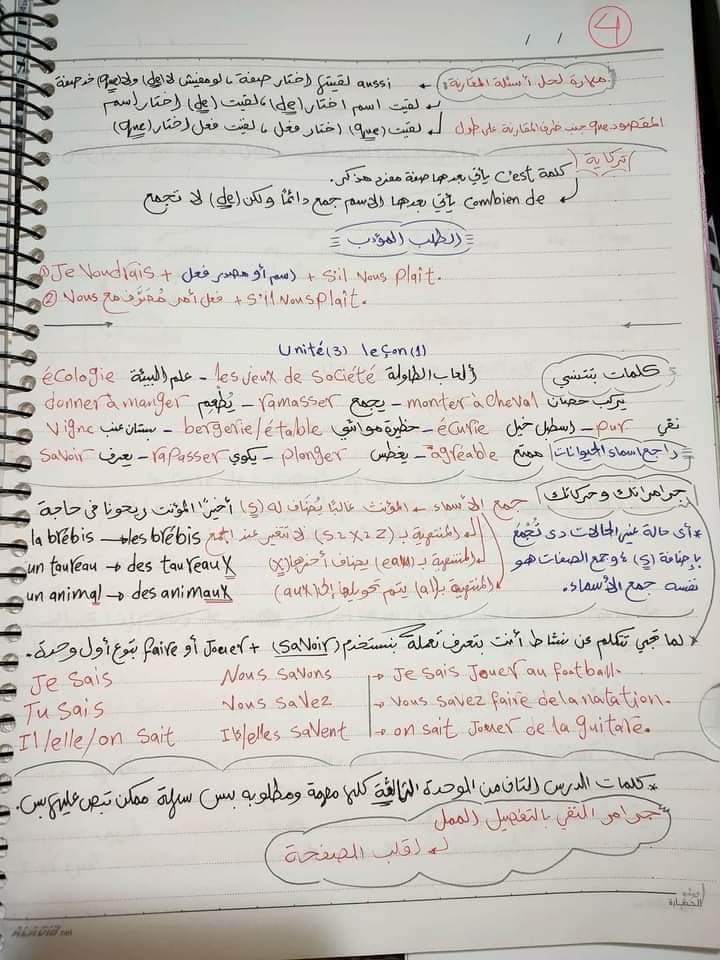 4
/ /
مهارة لحل أسئلة المقارنة: ← aussi لقيتها اختار صفة، لو مفيش لا (de) ولا (que) خد صفة
لقيت اسم اختار (de)، لقيت (de) اختار اسم
المقصود que جنب ظرف المقارنة على طول لقيت (que) اختار فعل، لقيت فعل اختار (que)
تركاية كلمة c'est يأتي بعدها صفة مفرد مذكر.
combien de يأتي بعدها الاسم جمع دائمًا ولكن (de) لا تجمع
الطلب المؤدب
① Je Voudrais + اسم أو مصدر فعل + Sil Nous Plait.
② Nous فعل أمر مُصَرَّف مع + S'il Nous plait.
Unité(3) leçon(1)
كلمات بتتنسي ألعاب الطاولة les jeux de Société - علم البيئة écologie
يركب حصان monter à cheval - يجمع ramasser - يُطعم donner à manger
نقي pur - إسطبل خيل écurie - حظيرة مواشي bergerie/étable - بستان عنب Vigne
راجع اسماء الحيوانات ممتع agréable - يغطس plonger - يكوي rapasser - يعرف Savoir
جراماتك وحركاتك جمع الأسماء ← المؤنث غالبًا يُضاف له (s) أخيرًا المؤنث ريحونا في حاجة
* أي حالة غير الحالات دي تُجْمَع المنتهية بـ (S-X-Z) لا تتغير عند الجمع la brébis → les brébis
بإضافة (s) وجمع الصفات هو المنتهية بـ (eau) يضاف أخرها (x) un taureau → des taureaux
نفسه جمع الأسماء. المنتهية بـ (al) يتم تحويلها إلى (aux) un animal → des animaux
* لما تيجي تتكلم عن نشاط أنت بتعرف تعمله بنستخدم (Savoir) + Jouer أو faire بتوع أول وحدة.
Je Sais Nous Savons → Je Sais Jouer au football.
Tu Sais Vous Savez → Vous Savez faire de la natation.
Il/elle/on Sait Ils/elles Savent → on Sait Jouer de la guitare.
* كلمات الدرس التاني من الوحدة التالتة كلها مهمة ومطلوبه بس سهلة ممكن تبص عليها بس.
* جرامر النفي بالتفصيل الممل
اقلب الصفحة